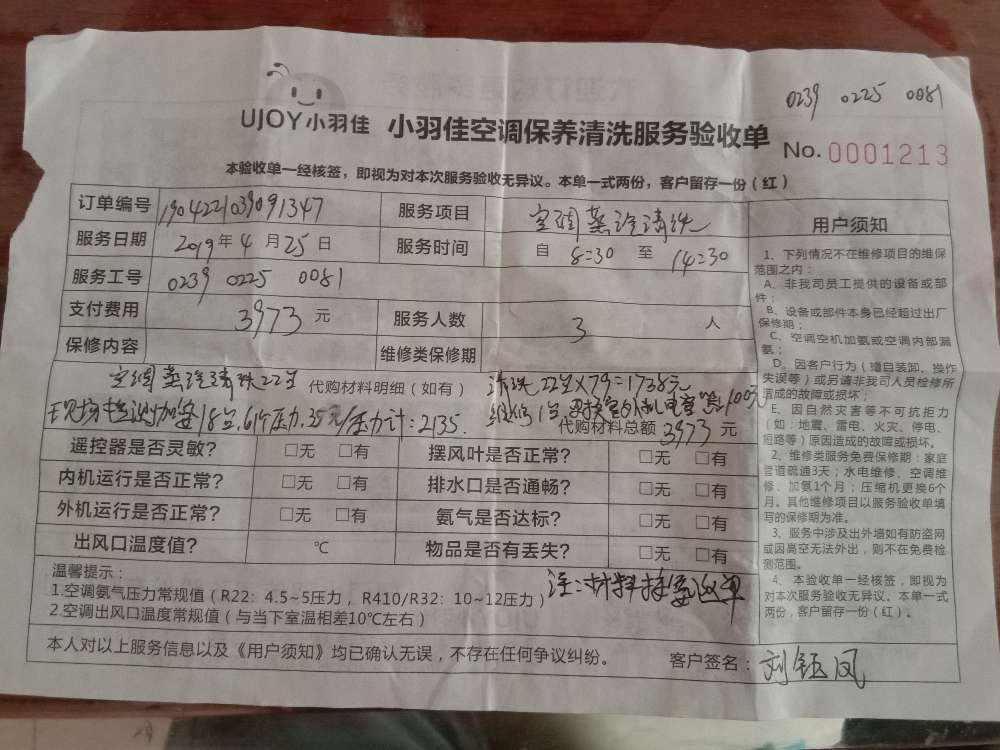 0239 0225 0081
UJOY小羽佳 小羽佳空调保养清洗服务验收单
No. 0001213
本验收单一经核签，即视为对本次服务验收无异议。本单一式两份，客户留存一份（红）
订单编号 1904221039091347 服务项目 空调蒸汽清洗
服务日期 2019年4月25日 服务时间 自 8:30 至 14:30
服务工号 0239 0225 0081
支付费用 3973 元 服务人数 3 人
保修内容 维修类保修期
空调蒸汽清洗22台 代购材料明细（如有） 清洗22台×79=1738元
现场检测加氨18台,61个压力,35元/压力计:2135. 维修1台 室外机电容 100元
代购材料总额 3973 元
遥控器是否灵敏？ □无 □有 摆风叶是否正常？ □无 □有
内机运行是否正常？ □无 □有 排水口是否通畅？ □无 □有
外机运行是否正常？ □无 □有 氨气是否达标？ □无 □有
出风口温度值？ ℃ 物品是否有丢失？ □无 □有
温馨提示：
1.空调氨气压力常规值（R22：4.5~5压力，R410/R32：10~12压力）
2.空调出风口温度常规值（与当下室温相差10℃左右）
注:材料
本人对以上服务信息以及《用户须知》均已确认无误，不存在任何争议纠纷。 客户签名：刘钰凤
用户须知
1、下列情况不在维修项目的维保
范围之内：
A、非我司员工提供的设备或部
件；
B、设备或部件本身已经超过出厂
保修期；
C、空调空机加氨或空调内部漏
氨；
D、因客户行为（擅自装卸、操作
失误等）或另请非我司人员检修所
造成的故障或损坏；
E、因自然灾害等不可抗拒力
（如：地震、雷电、火灾、停电、
短路等）原因造成的故障或损坏。
2、维修类服务免费保修期：家庭
管道疏通3天；水电维修、空调维
修、加氨1个月；压缩机更换6个
月。其他维修项目以服务验收单填
写的保修期为准。
3、服务中涉及出外墙如有防盗网
或因高空无法外出，则不在免费检
测范围。
4、本验收单一经核签，即视为
对本次服务验收无异议。本单一式
两份，客户留存一份（红）。